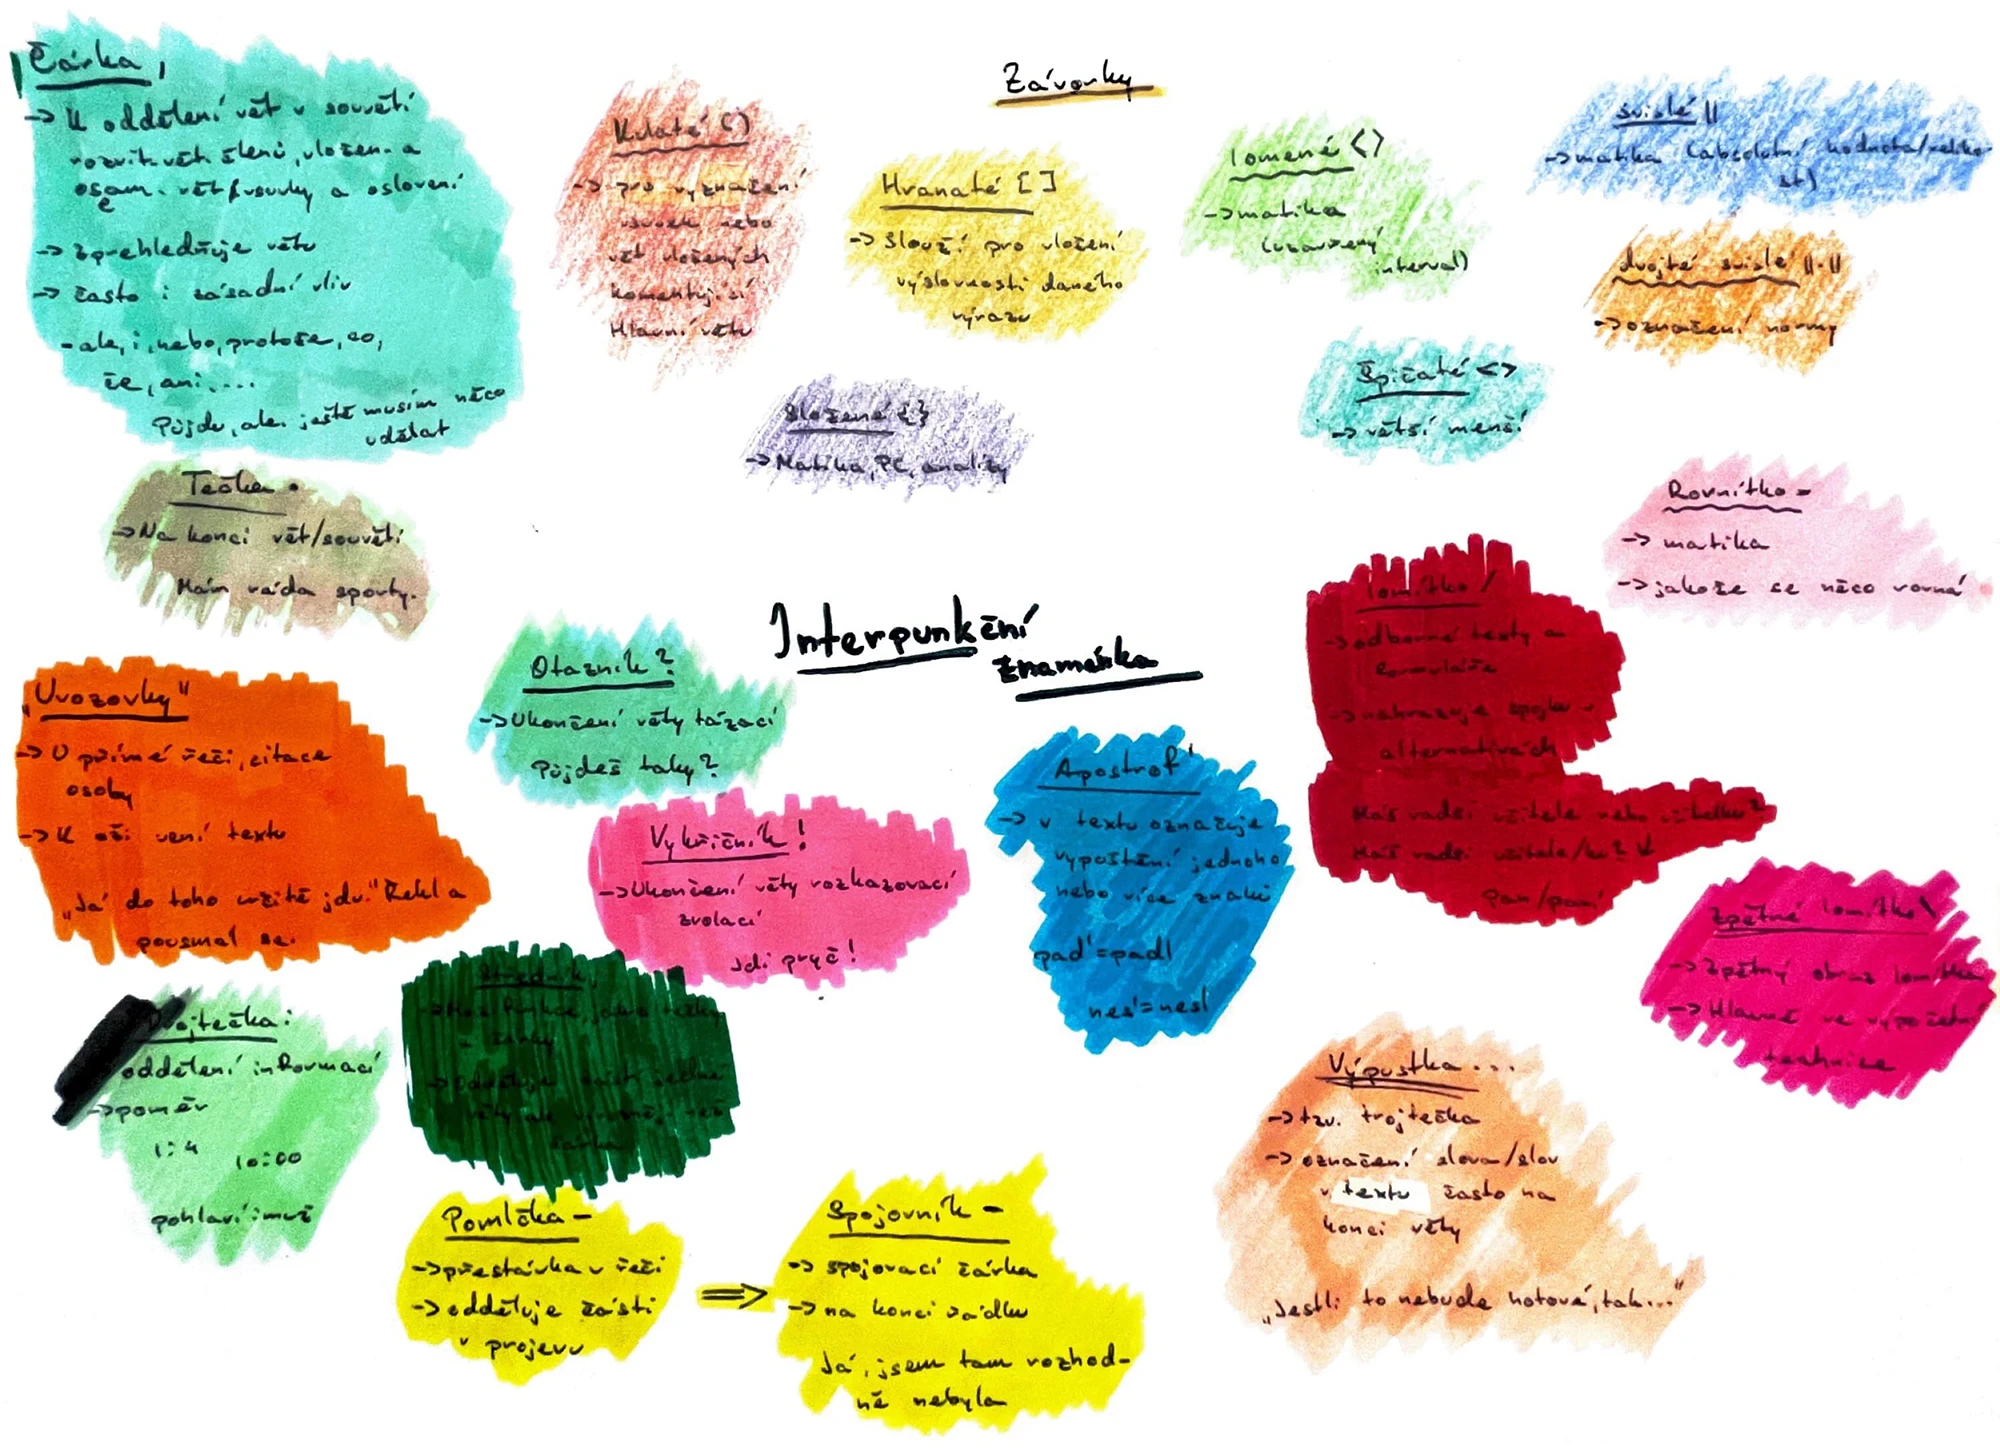 Čárka ,
-> K oddělení vět v souvětí
rozvit. vět. členů, vložen. a
osam. vět/vsuvky a oslovení
e
-> Zpřehledňuje větu
-> často i zásadní vliv
- ale, i, nebo, protože, co,
že, ani, ...
Půjdu, ale ještě musím něco
udělat
Tečka .
-> Na konci vět/souvětí
Mám ráda sporty.
„Uvozovky"
-> U přímé řeči, citace
osoby
-> K oživení textu
„Já do toho určitě jdu." Řekl a
pousmál se.
Dvojtečka :
oddělení informací
-> poměr
1:4 10:00
pohlaví: muž
Závorky
Kulaté ( )
-> pro vyznačení
vsuvek nebo
vět vložených
komentující
Hlavní větu
Hranaté [ ]
-> Slouží pro vložení
výslovnosti daného
výrazu
Složené { }
-> Matika, PC, analízy
lomené < >
-> matika
(uzavřený
interval)
svislé ||
-> matika (absolutní hodnota/veliko-
st)
dvojté svislé ||.||
-> označení normy
Špičaté <>
-> větší menší
Rovnítko =
-> matika
-> jakože se něco rovná
Interpunkční
znaménka
Otazník ?
-> Ukončení věty tázací
Půjdeš taky?
Vykřičník !
-> Ukončení věty rozkazovací
zvolací
Jdi pryč!
Středník ;
-> Má funkce, jako tečky
čárky
-> Odděluje části jedné
věty ale výrazněji než
čárka
Pomlčka -
-> přestávka v řeči
-> odděluje části
v projevu
=>
Spojovník -
-> spojovací čárka
-> na konci řádku
Já, jsem tam rozhod-
ně nebyla
Apostrof '
-> v textu označuje
vypoštění jednoho
nebo více znaků
pad' = padl
nes' = nesl
lomítko /
-> odborné texty a
formuláře
-> nahrazuje spojku v
alternativách
Máš radši učitele nebo učitelku?
Máš radši učitele/ku?
Pan/paní
Zpětné lomítko \
-> Zpětný obraz lomítka
-> Hlavně ve výpočetní
technice
Výpustka ...
-> tzv. trojtečka
-> označení slova/slov
v textu často na
konci věty
„Jestli to nebude hotové, tak..."